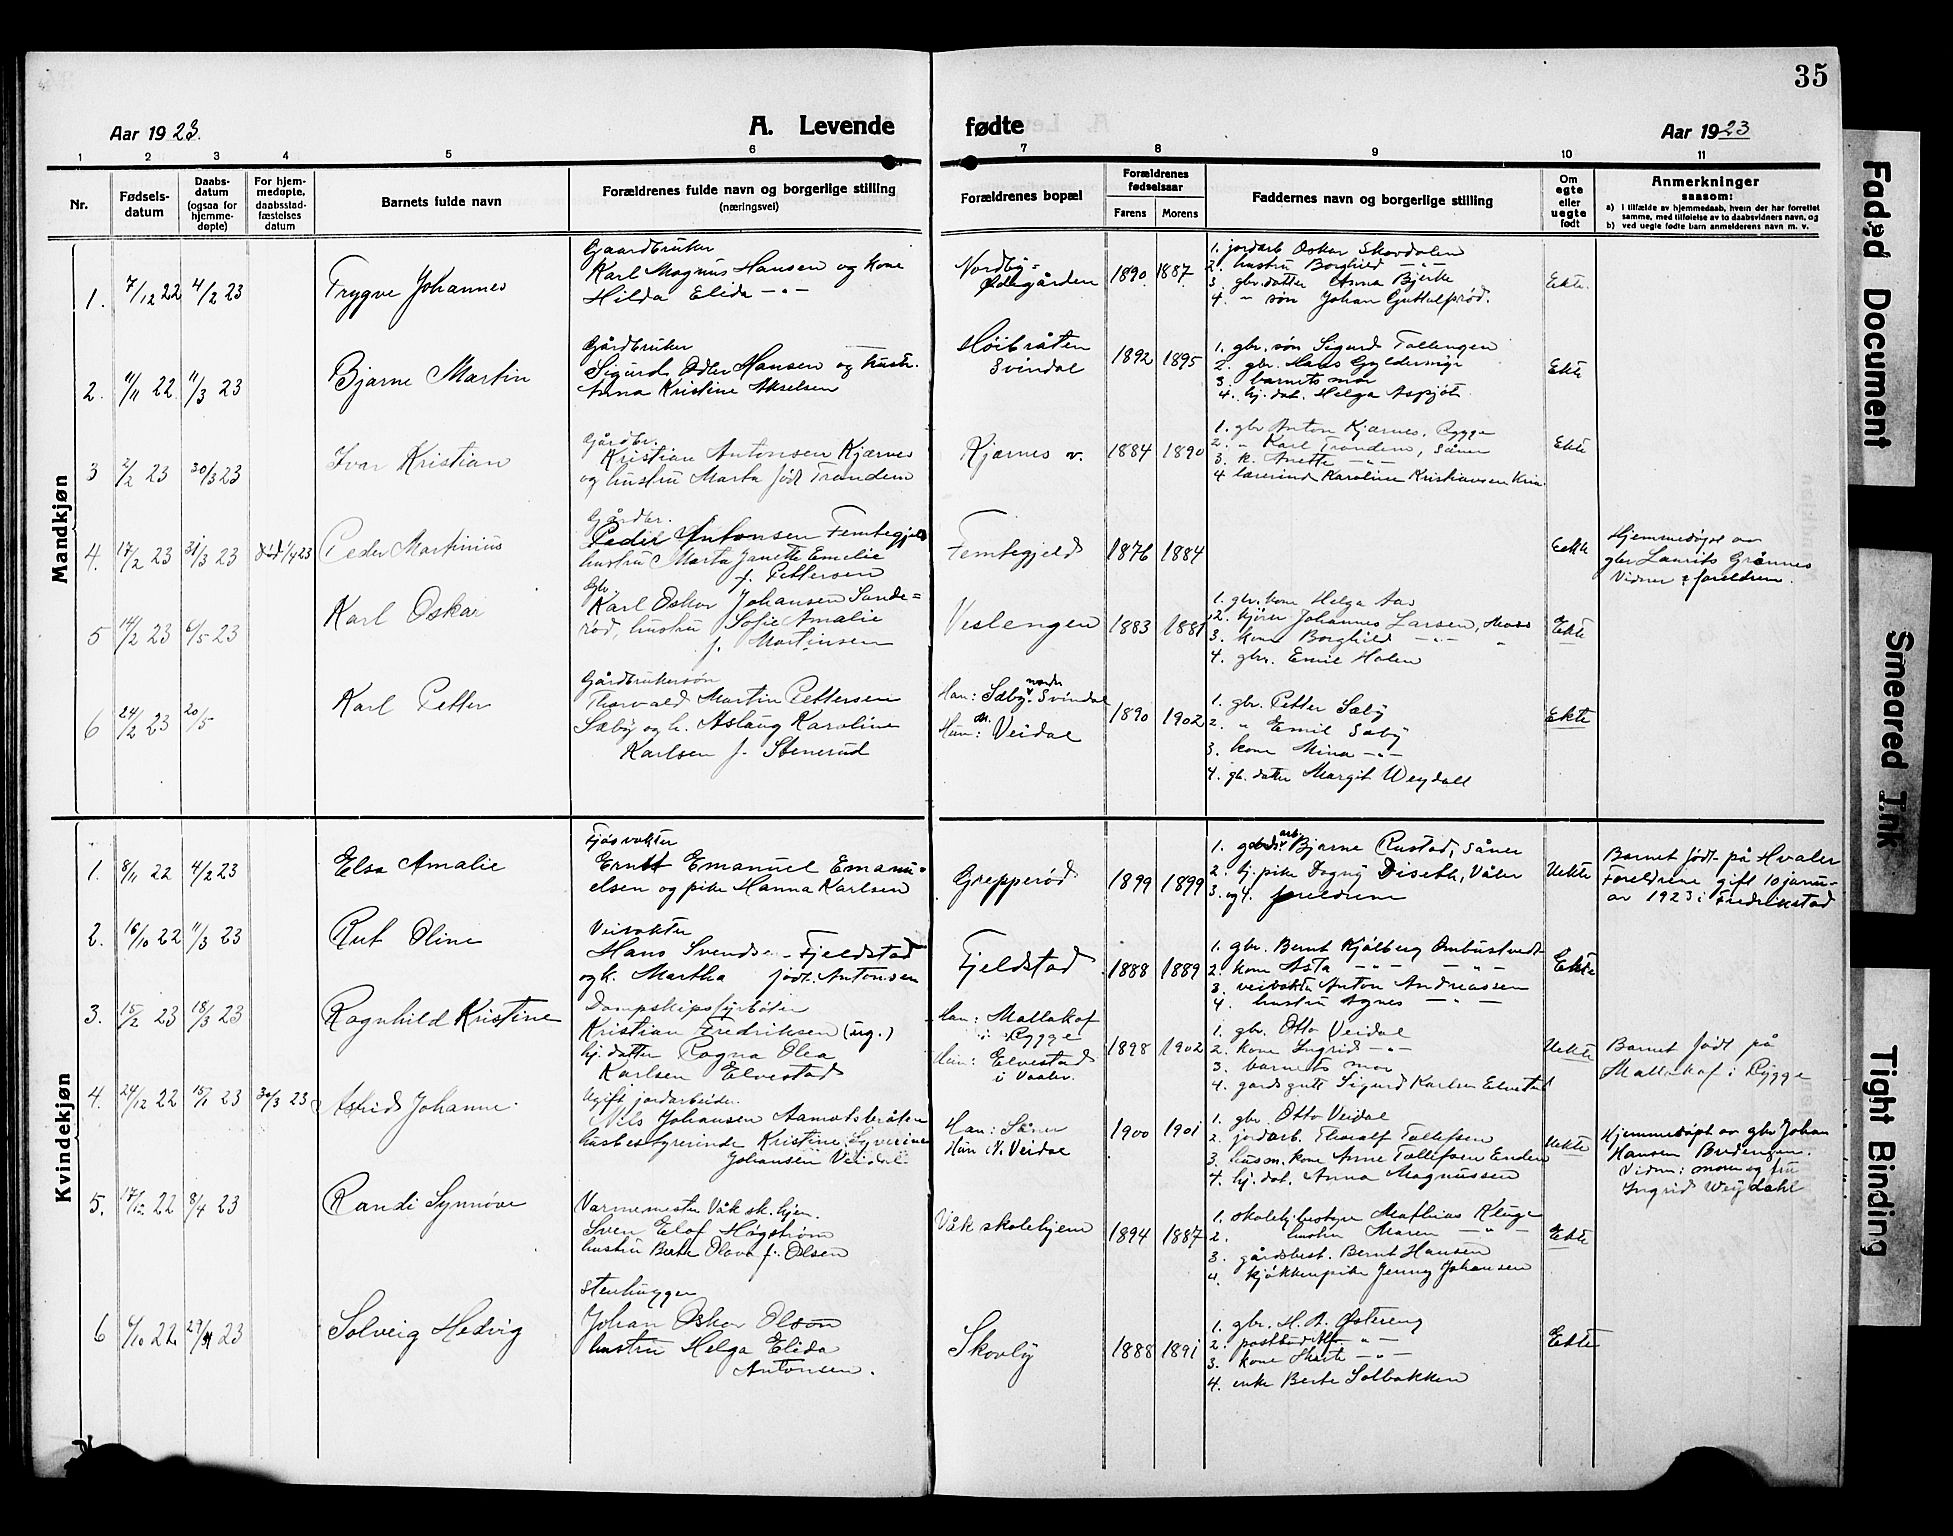 35
Aar 1923.
A. Levende
fødte
Aar 1923
1 2 3 4 5 6 7 8 9 10 11
Nr.
Fødsels-
datum
Daabs-
datum
(ogsaa for
hjemme-
døpte)
For hjem-
medøpte,
daabsstad-
fæstelses
datum
Barnets fulde navn
Forældrenes fulde navn og borgerlige stilling
(næringsvei)
Forældrenes bopæl
Forældrenes
fødselsaar
Farens Morens
Faddernes navn og borgerlige stilling
Om
egte
eller
uegte
født
Anmerkninger
saasom:
a) i tilfælde av hjemmedaab, hvem der har forrettet
samme, med tilføielse av to daabsvidners navn, og
b) ved uegte fødte barn anmelderens navn m. v.
Mandkjøn
1. 7/12 22 4/2 23
Trygve Johannes
Gaardbruker
Karl Magnus Hansen og kone
Hilda Elida -"-
Nordby=
Ødegården
1890. 1887.
1. jordarb Oskar Skovdalen
2. hustru Borghild -"-
3. gbr. datter Anna Bjerke
4. " søn Johan Guttulfsrød.
Ekte.
2. 11/11 22 11/3 23
Bjarne Martin
Gårdbruker
Sigurd Odler Hansen og hustr.
Anna Kristine Akselsen
Høibråten
Svindal
1892 1895
1. gbr. søn Sigurd Tollengen
2. gbr. Hans Gyldersvige
3. barnets mor
4. hj. dat. Helga Aspjøt.
Ekte
3 2/2 23 30/3 23
Ivar Kristian
Gårdbr.
Kristian Antonsen Kjærnes
og hustru Marta født Trondem
Kjærnes v.
1884 1890
1. gbr Anton Kjærnes, Rygge
2. " Karl Trondem, Såner
3. k. Anette -"-
4 lærerind Karoline Kristiansen Kria
Ekte
4. 17/2 23 31/3 23 død 1/4 23
Peder Martinius
Gårdbr.
Peder Antonsen Femtegjeld
hustru Marta Janette Emelie
f. Pettersen
Femtegjeld
1876 1884
Eekte
Hjemmedøpt av
gbr Laurits Grønnes
Vidner: foreldrene.
5 14/2 23 6/5 23
Karl Oskar
Gbr.
Karl Oskar Johansen Sande=
rød, hustru Sofie Amalie
f. Martinsen
Veslengen
1883 1881
1. gbr. kone Helga Aas
2. kjører Johannes Larsen, Moss
3. kone Borghild -"- "
4. gbr. Emil Holen
Ekte
6 24/2 23 20/5
Karl Petter
Gårdbrukersøn
Thorvald Martin Pettersen
Sæby og h. Aslaug Karoline
Karlsen f. Stenerud
Han: Sæby nordre Svindal
Hun: N. Veidal
1890 1902
1. gbr. Petter Sæby
2. " Emil Sæby
3. kone Mina -"-
4. gb. datter Margit Weydall
Ekte
Kvindekjøn
1. 8/11 22 4/2 23
Elsa Amalie
Fjøsvokter
Ernst Emanuel Emanu-
elsen og pike Hanna Karlsen
Grepperød
1899 1899
1. gårds arb Bjarne Rustad, Såner
2. hj. pike Dagny Diseth, Våler
3. og 4. foreldrene
Uekte
Barnet født på Hvaler
Foreldrene gift 10 janu-
ar 1923 i Fredrikstad
2. 16/10 22 11/3 23
Rut Oline
Veivokter
Hans Svendsen Fjeldstad
og h. Martha født Antonsen
Fjeldstad
1888 1889
1. gbr. Bernt Kjølberg Ombustvedt
2. kone Asta -"- -"-
3. veivokter Anton Andreassen
4. hustru Agnes -"-
Ekte
3. 15/2 23 18/3 23
Ragnhild Kristine
Dampskipsfyrbøter
Kristian Fredriksen (ug.)
hj. datter Ragna Olea
Karlsen Elvestad
Han: Mallakof
i Rygge
Hun: Elvestad
i Vaaler.
1898 1902
1. gbr. Otto Veidal
2. kone Ingrid -"-
3. barnets mor
4. gårdsgutt Sigurd Karlsen Elvestad
Uekte
Barnet født på
Mallakof i Rygge
4. 24/12 22 15/1 23 30/3 23
Astrid Johanne.
Ugift jordarbeider
Nils Johansen Aamodtbråten
husbestyrerinde Kristine Syverine
Johansen Veidal.
Han: Såner
Hun N. Veidal
1900 1901
1. gbr Otto Veidal
2. jordarb. Thoralf Tollefsen
3. husm. kone Anne Tollefsen Enden
4. hj. dat. Anna Magnussen
Uekte
Hjemmedøpt av gbr Johan
Hansen Budengen.
Vidner: moren og fru
Ingrid Weydahl
5. 17/12 22 8/4 23
Randi Synnøve
Varmemester Våk sk. hjem.
Sven Elof Høgstrøm
hustru Berte Olava f. Olsen
Våk skolehjem
1894 1887
1. skolehj. bestyrer Mathias Kluge
2. hustru Maren -"-
3. gårdsbest. Bernt Hansen
4. kjøkkenpike Jenny Johansen
Ekte
6 6/10 22 29/4 23
Solveig Hedvig
Stenhugger
Johan Oskar Olsen
hustru Helga Elida
Antonsen.
Skovly
1888 1891
1. gbr. H. A. Østereng
2. postbud -"-
3. kone -"-
4. enke Berte Solbakken
Ekte
Faded Document
Smeared Ink
Tight Binding